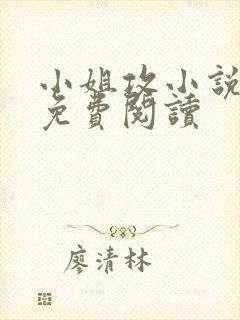 小姐攻小說
免費閱讀
廖清林